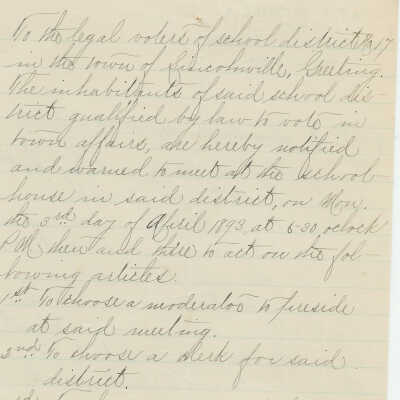 To the legal voters of school district No 17
in the town of Lincolnville, Greeting.
The inhabitants of said school dis-
trict qualified by law to vote in
town affairs, are hereby notified
and warned to meet at the school-
house in said district, on Mon.
the 3rd day of April 1893, at 6-30, oclock
P.M. then and there to act on the fol-
lowing articles.
1st To choose a moderator to preside
at said meeting.
2nd To choose a clerk for said
district.